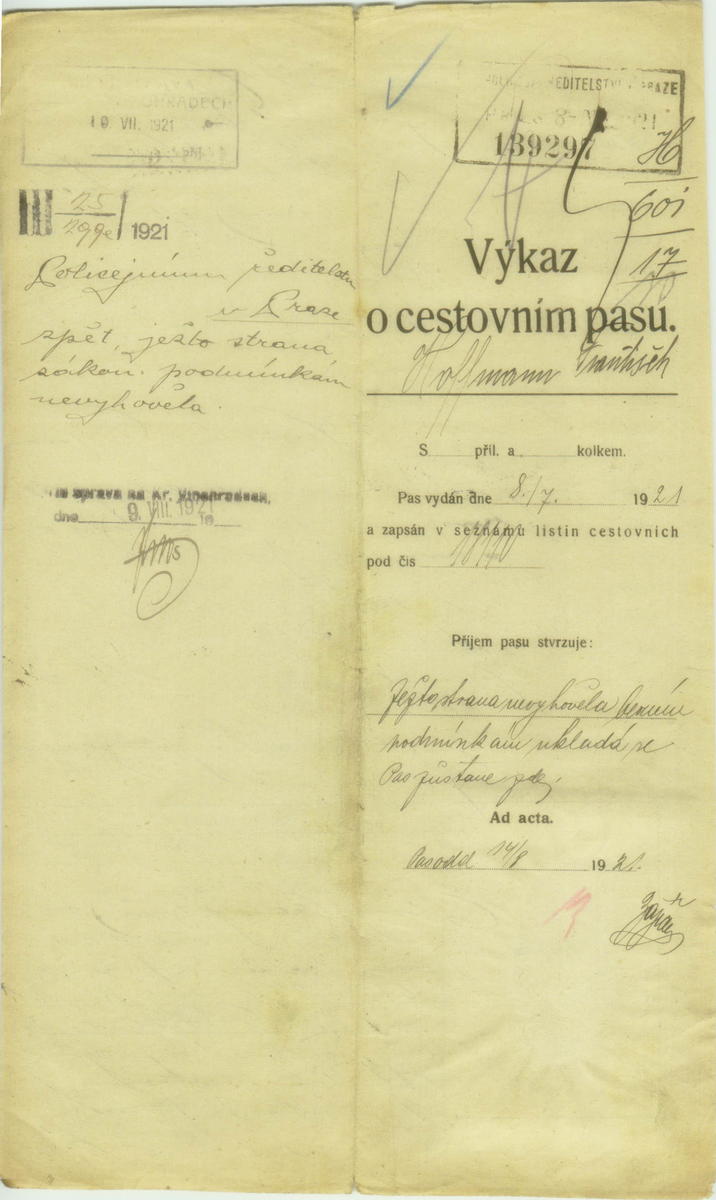 HRADECH
10 VII. 1921
III 25/299e / 1921
Policejnímu ředitelství
v Praze
zpět, ježto strana
zákon. podmínkám
nevyhověla.
správa na Kr. Vinohradech,
dne 9. VIII. 1921
ŘEDITELSTVÍ V PRAZE
139297
H
601
17
Výkaz
o cestovním pasu.
Hoffmann František
S příl. a kolkem.
Pas vydán dne 8./7. 1921
a zapsán v seznamu listin cestovních
pod čís
Příjem pasu stvrzuje:
Ježto strana nevyhověla berním
podmínkám ukládá se
Pas zůstane zde.
Ad acta.
Pas odd 14/8 1921.